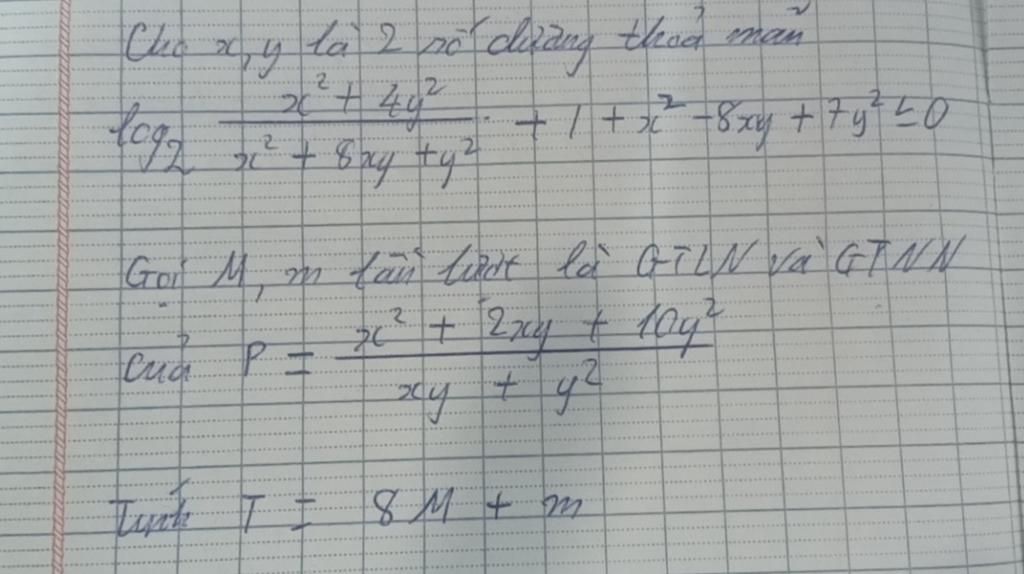 Cho x, y là 2 số dương thoả mãn
log₂ (x² + 4y²)/(x² + 8xy + y²) + 1 + x² - 8xy + 7y² ≤ 0
Gọi M, m lần lượt là GTLN và GTNN
của P = (x² + 2xy + 10y²)/(xy + y²)
Tính T = 8M + m